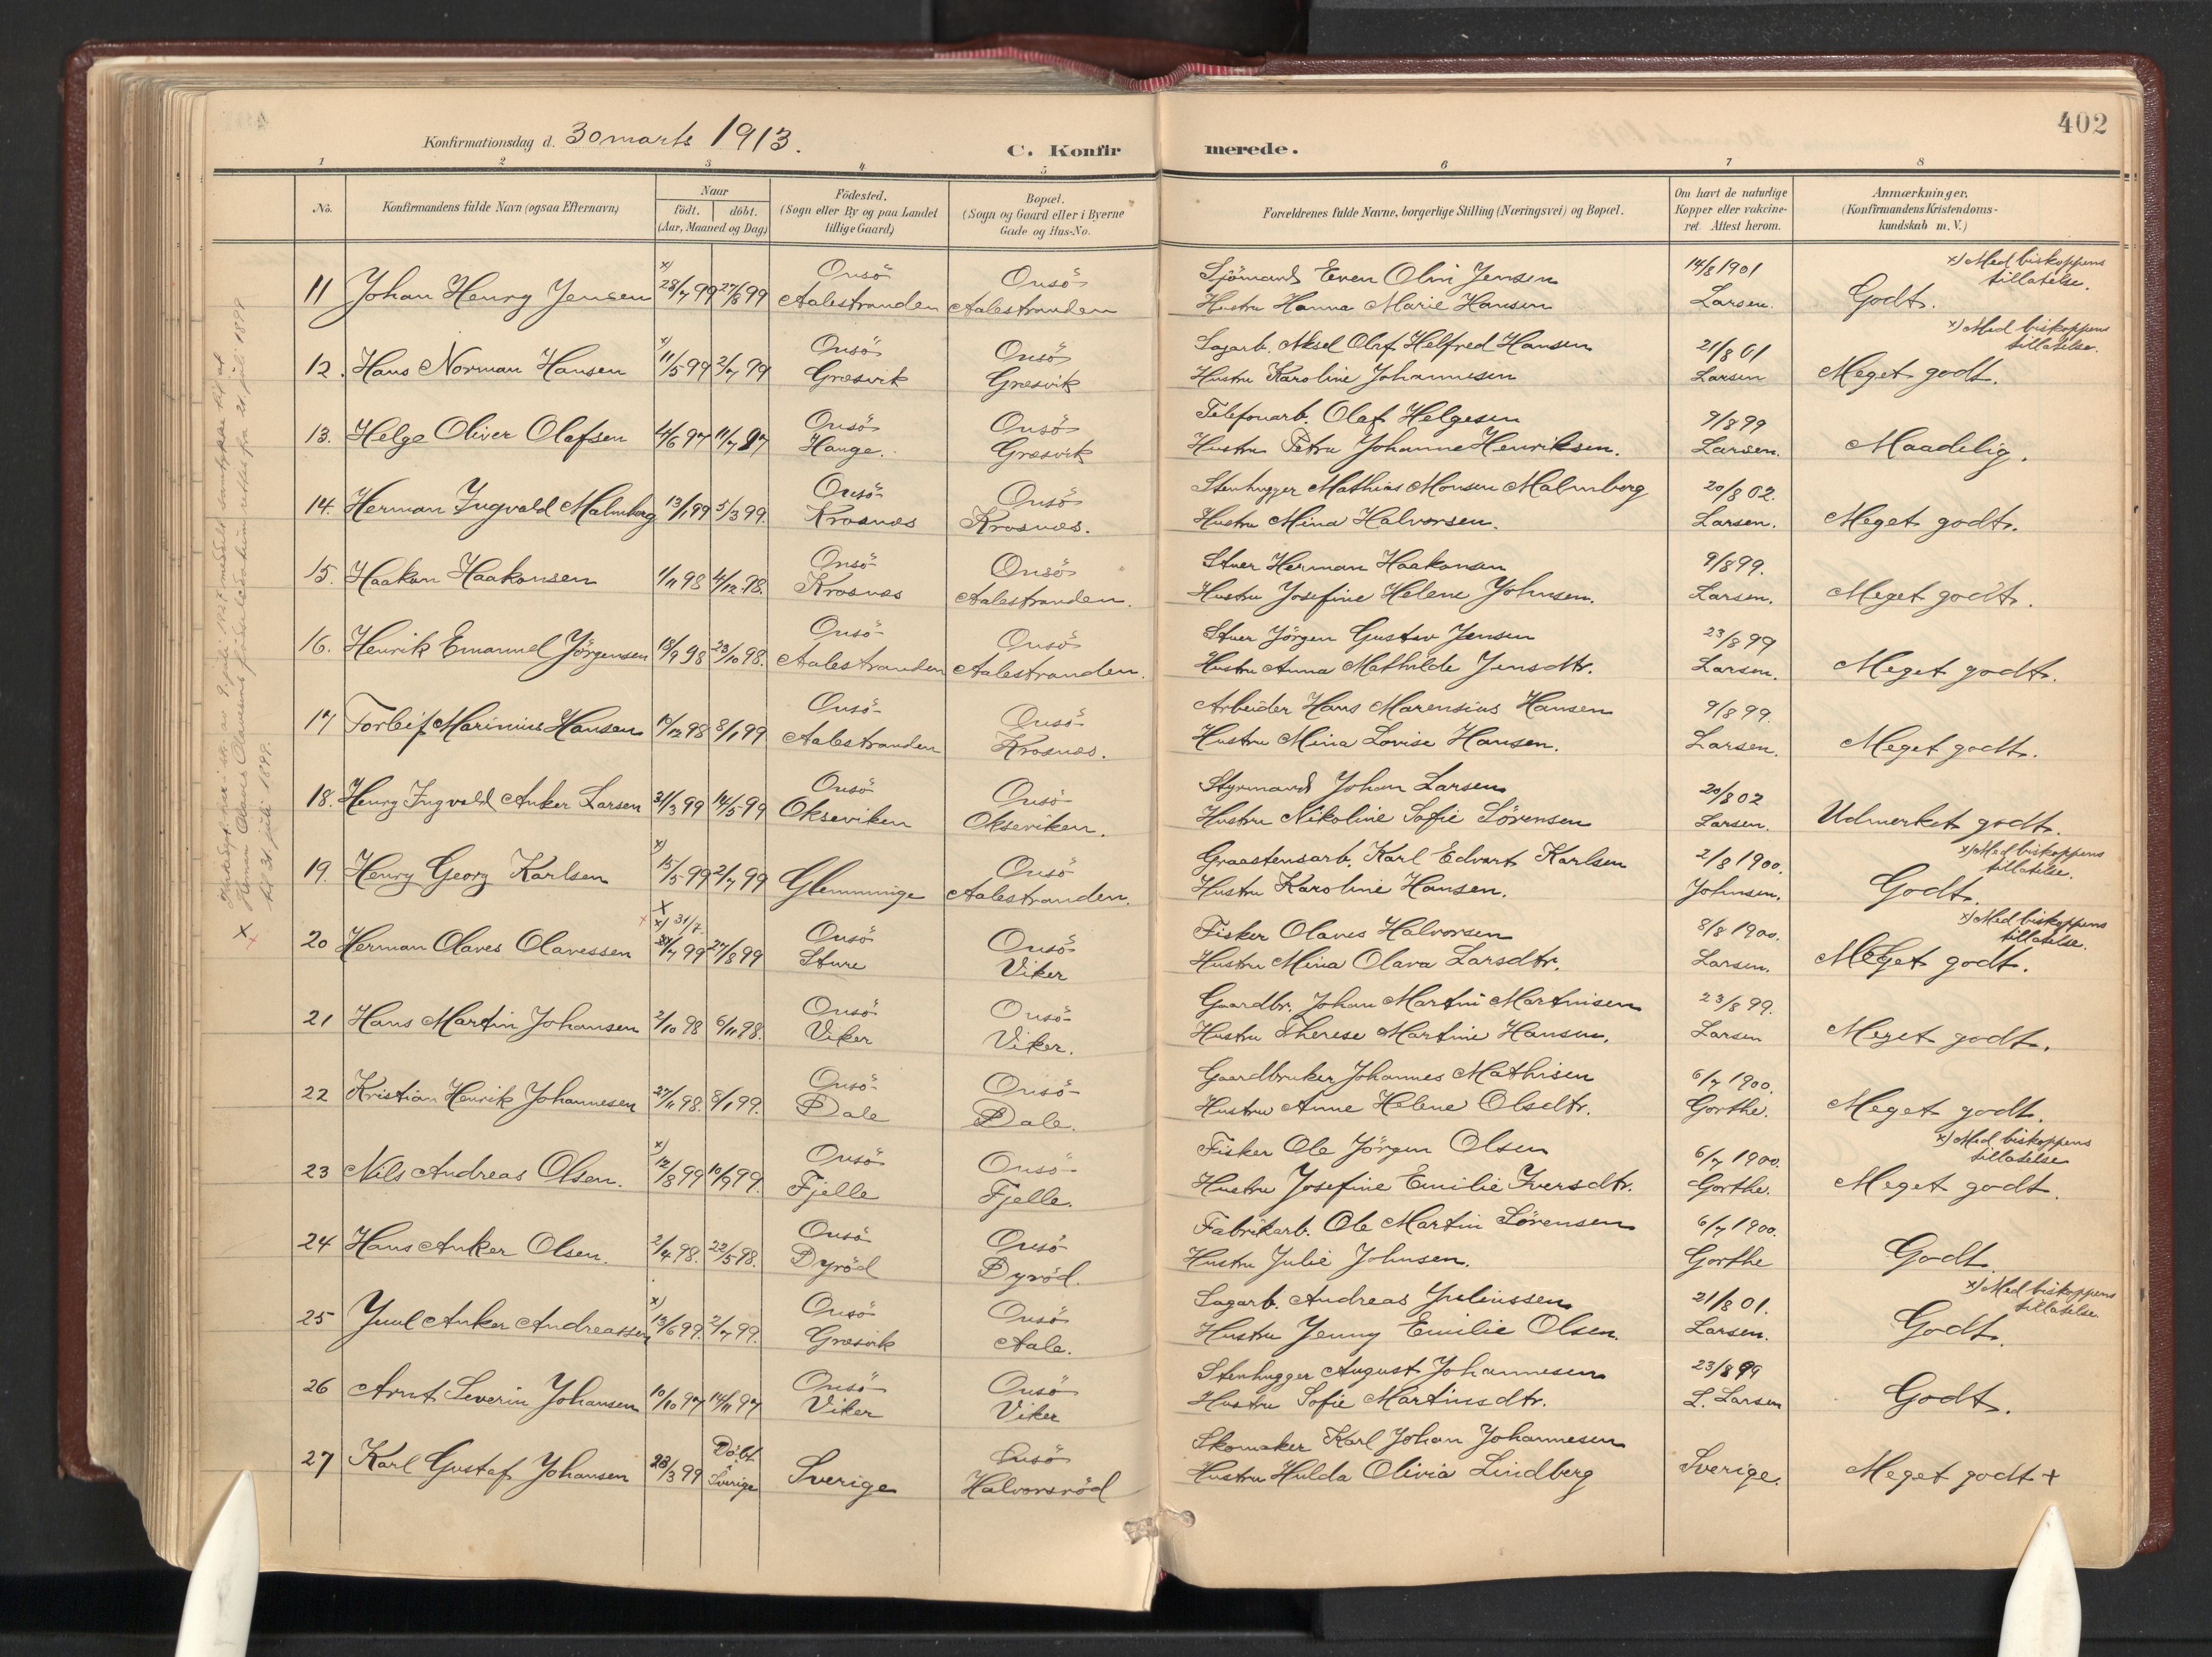 402
Konfirmationsdag d. 30 marts 1913.
C. Konfirmerede.
1 2 3 4 5 6 7 8
No.
Konfirmandens fulde Navn (ogsaa Efternavn)
Naar
født. døbt.
(Aar, Maaned og Dag)
Fødested.
(Sogn eller By og paa Landet
tillige Gaard)
Bopæl.
(Sogn og Gaard eller i Byerne
Gade og Hus-No.
Forældrenes fulde Navne, borgerlige Stilling (Næringsvei) og Bopæl.
Om havt de naturlige
Kopper eller vakcine-
ret. Attest herom.
Anmærkninger.
(Konfirmandens Kristendoms-
kundskab m. V.)
x) Onsö Onsö Sjömand Even Olin Jensen 14/8 1901 x) Med biskoppens tillatelse.
11 Johan Henry Jensen 28/7 99 27/8 99 Aalestranden Aalestranden Hustru Hanna Marie Hansen Larsen. Godt.
x) Onsö Onsö Sagarb. Aksel Olaf Helfred Hansen 21/8 01 x) Med biskoppens tillatelse.
12. Hans Norman Hansen 11/5 99 2/7 99 Græsvik Græsvik Hustru Karoline Johannesen Larsen Meget godt.
Onsö Onsö Telefonarb. Olaf Helgesen 9/8 99
13. Helge Oliver Olafsen 4/6 97 11/7 97 Hauge. Græsvik Hustru Petra Johanne Henriksen. Larsen. Maadelig.
Onsö Onsö Stenhugger Mathias Monsen Malmberg 20/8 02.
14. Herman Ingvald Malmberg 13/1 99 5/3 99. Krosnæs Krosnæs. Hustru Mina Halvorsen. Larsen. Meget godt.
Onsö Onsö Stuer Herman Haakonsen 9/8 99.
15. Haakon Haakonsen 1/11 98 4/12 98. Krosnæs Aalestranden. Hustru Josefine Helene Johnsen. Larsen. Meget godt.
Onsö Onsö Stuer Jörgen Gustav Jensen 23/8 99
16. Henrik Emanuel Jörgensen 18/9 98 23/10 98. Aalestranden Aalestranden. Hustru Anna Mathilde Jensdtr. Larsen. Meget godt.
Onsö Onsö Arbeider Hans Marensius Hansen 9/8 99.
17 Torleif Marinius Hansen 17/12 98 8/1 99 Aalestranden Krosnæs. Hustru Mina Lovise Hansen. Larsen. Meget godt.
Onsö Onsö Styrmand Johan Larsen 20/8 02
18. Henry Ingvald Anker Larsen 31/3 99 14/5 99 Okseviken Okseviken. Hustru Nikoline Sofie Sörensen Larsen. Udmerket godt.
x) Onsö Graastensarb. Karl Edvart Karlsen 2/8 1900. x) Med biskoppens tillatelse.
19. Henry Georg Karlsen 15/5 99 2/7 99 Glemminge Aalestranden. Hustru Karoline Hansen. Johnsen. Godt.
X x) 31/7. Onsö Onsö Fisker Olaves Halvorsen 8/8 1900. x) Med biskoppens tillatelse.
20 Herman Olaves Olavessen /7 99 27/8 99 Sture Viker Hustru Mina Olava Larsdtr. Larsen. Meget godt.
Onsö Onsö Gaardbr. Johan Martin Martinisen 23/8 99.
21 Hans Martin Johansen 2/10 98 6/11 98. Viker Viker. Hustru Therese Martine Hansen. Larsen Meget godt.
Onsö Onsö Gaardbruker Johannes Mathisen 6/7 1900.
22 Kristian Henrik Johannesen 27/11 98. 8/1 99. Dale Dale. Hustru Anne Helene Olsdtr. Gorthe. Meget godt.
x) Onsö Onsö Fisker Ole Jörgen Olsen 6/7 1900. x) Med biskoppens tillatelse
23 Nils Andreas Olsen. 12/8 99 10/9 99. Fjelle Fjelle. Hustru Josefine Emilie Iversdtr. Gorthe. Meget godt.
Onsö Onsö Fabrikarb. Ole Martin Sörensen 6/7 1900.
24 Hans Anker Olsen. 2/4 98. 22/5 98. Dyröd Dyröd. Hustru Julie Johnsen. Gorthe Godt.
x) Onsö Onsö Sagarb. Andreas Juliussen 21/8 01. x) Med biskoppens tillatelse.
25 Juul Anker Andreassen 13/6 99. 2/7 99. Græsvik Aale. Hustru Jenny Emilie Olsen. Larsen. Godt.
Onsö Onsö Stenhugger August Johannesen 23/8 99
26 Arnt Severin Johansen 10/10 97 14/11 97 Viker Viker Hustru Sofie Martinsdtr. L. Larsen Godt.
Döbt. Onsö Skomaker Karl Johan Johannesen
27 Karl Gustaf Johansen 23/3 99 i Sverige Sverige Halvorsröd Hustru Hulda Olivia Lindberg Sverige. Meget godt +
X Herman Olaus Olavesens födselsdatum rettes fra 21. juli 1899
til 31. juli 1899.